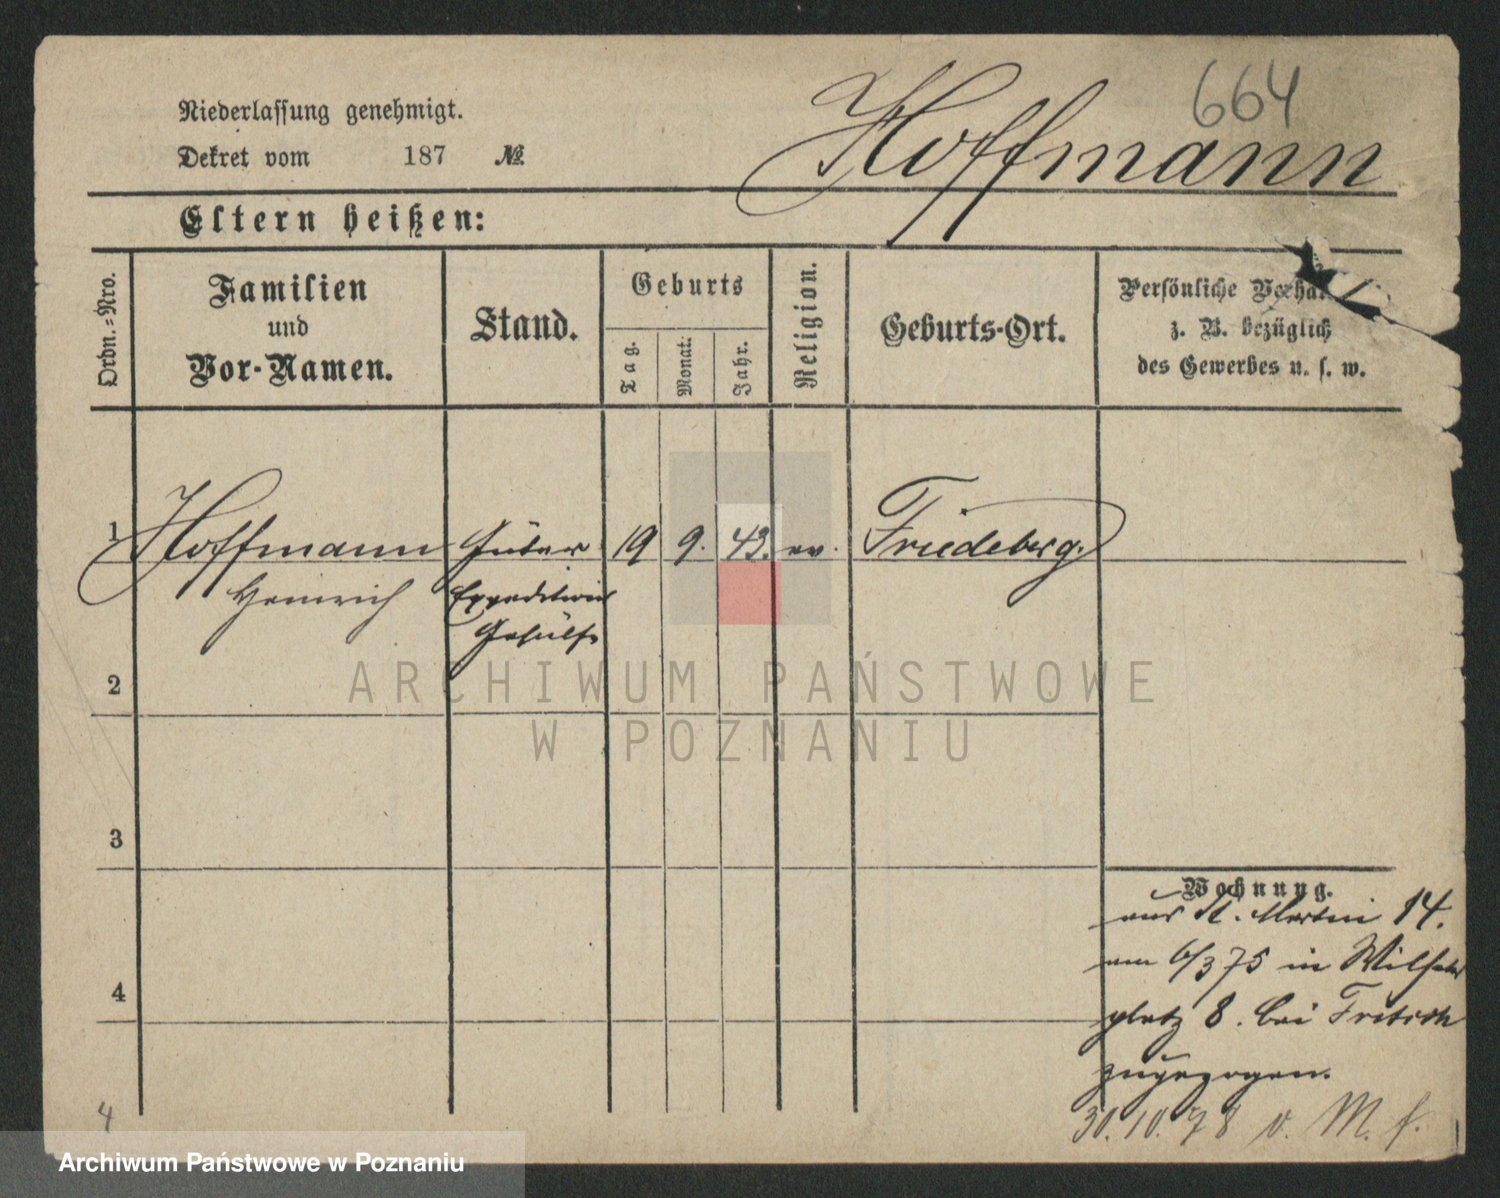 664
Niederlassung genehmigt.
Dekret vom 187 №
Hoffmann
Eltern heißen:
Ordn.=Nro.
Familien
und
Vor-Namen.
Stand.
Geburts
Tag.
Monat.
Jahr.
Religion.
Geburts-Ort.
Persönliche Verhä
z. B. bezüglich
des Gewerbes u. s. w.
1 Hoffmann Güter 19 9. 43. ev. Friedeberg.
Heinrich Expeditions
Gehülfe
2
3
4
Wohnung.
aus St. Martin 14.
am 6/3 75 in Wilhelms
platz 8. bei Fritsch
zugezogen.
30.10.78 v. M. f.
4
ARCHIWUM PAŃSTWOWE
W POZNANIU
Archiwum Państwowe w Poznaniu